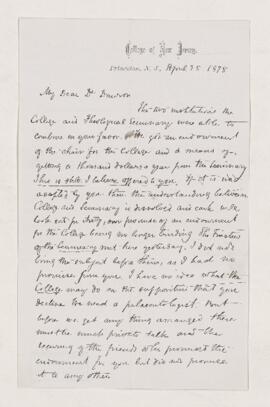 College of New Jersey.
Princeton, N. J., April 25 1878
My Dear Dr Dawson
The two institutions the
College and Theological Seminary were able to
combine in your favor. We got an endowment
of the chair for the College and a means of
getting a thousand dollars a year from the Seminary
This is still I believe offered to you. If it is not
accepted by you then the understanding between
College and Seminary is dissolved and each will
look out for itself, our promise of an endowment
for the College being no longer binding. The Trustees
of the Seminary met here yesterday. I did not
bring the subject before them, as I had no
promise from you. I have no idea what the
College may do on the supposition that you
decline. We need a palaeontologist. But
before we get any thing arranged there
must be much private talk and the
securing of the friends who promised the
endowment for you but did not promise
it to any other